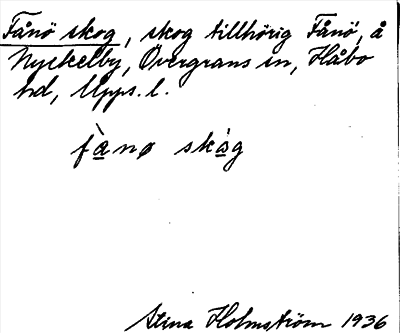 Fånö skog, skog tillhörig Fånö, å
Nyckelby, Övergrans sn, Håbo
hd, Upps. l.
fànø skóg
Stina Holmström 1936